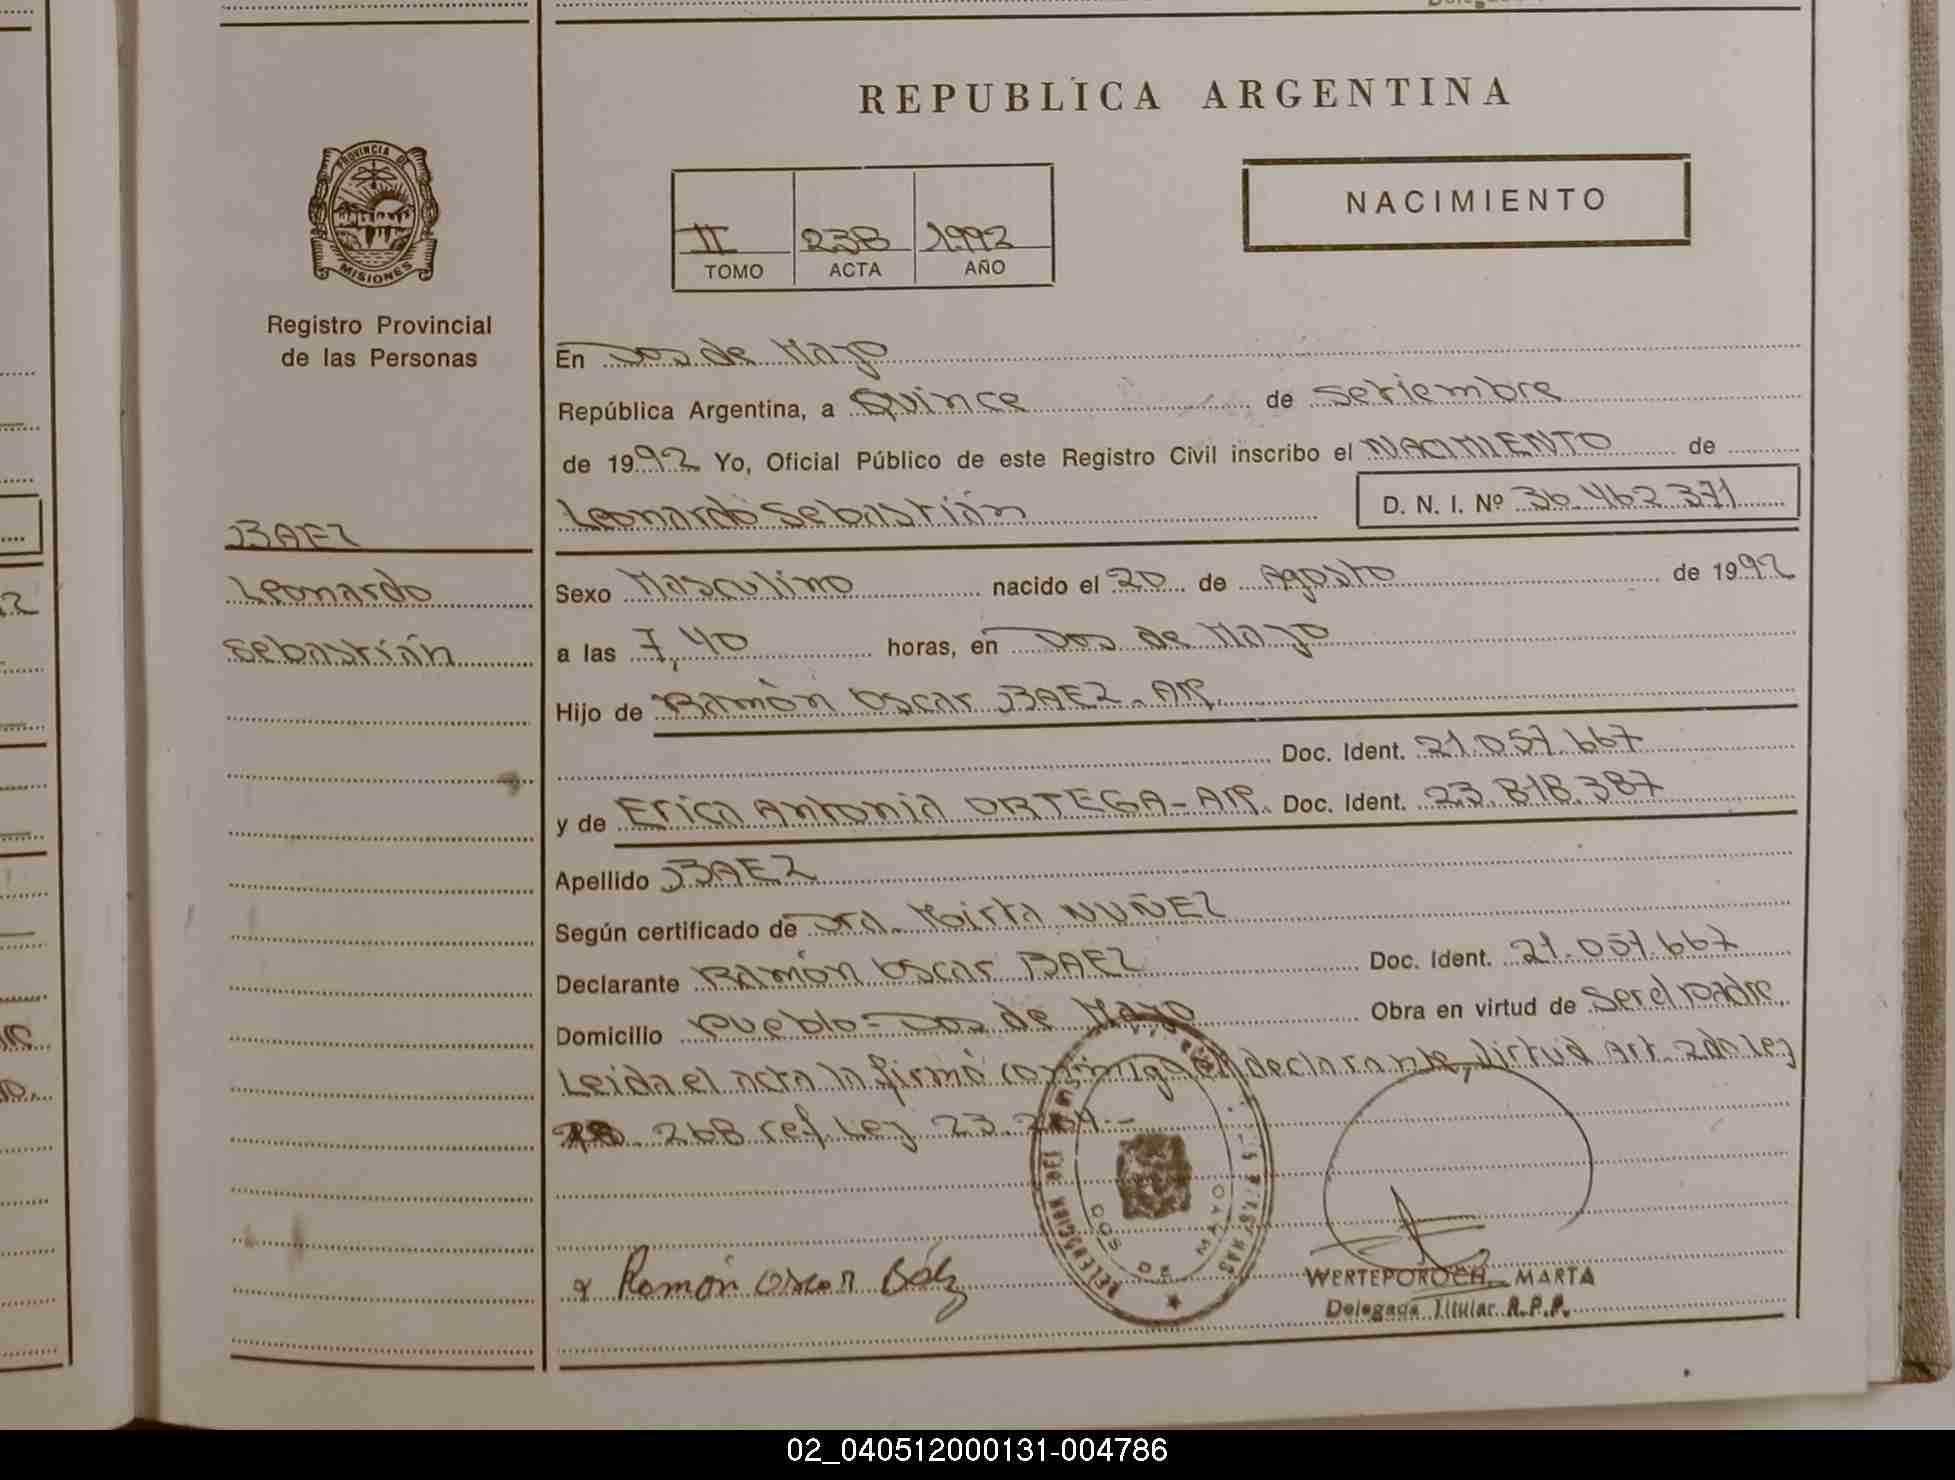 REPUBLICA ARGENTINA
PROVINCIA DE
MISIONES
Registro Provincial
de las Personas
NACIMIENTO
II 238 1992
TOMO ACTA AÑO
En Dos de Mayo
República Argentina, a Quince de Setiembre
de 1992 Yo, Oficial Público de este Registro Civil inscribo el NACIMIENTO de
Leonardo Sebastián D. N. I. Nº 36.462.371
BAEZ
Leonardo
Sebastián
Sexo Masculino nacido el 20 de Agosto de 1992
a las 7,40 horas, en Dos de Mayo
Hijo de Ramón Oscar BAEZ - Arg.
Doc. Ident. 21.057.667
y de Erica Antonia ORTEGA - Arg. Doc. Ident. 23.818.387
Apellido BAEZ
Según certificado de Dra. Mirta NUÑEZ
Declarante Ramón Oscar BAEZ Doc. Ident. 21.057.667
Domicilio Pueblo - Dos de Mayo Obra en virtud de Ser el Padre.
Leida el acta la firmó conmigo el declarante, virtud Art. 2do Ley
268 ref. Ley 23.264.-
DOS DE MAYO
Ramón Oscar Báez
WERTEPOROCH, MARTA
Delegada Titular R.P.P.
02_040512000131-004786